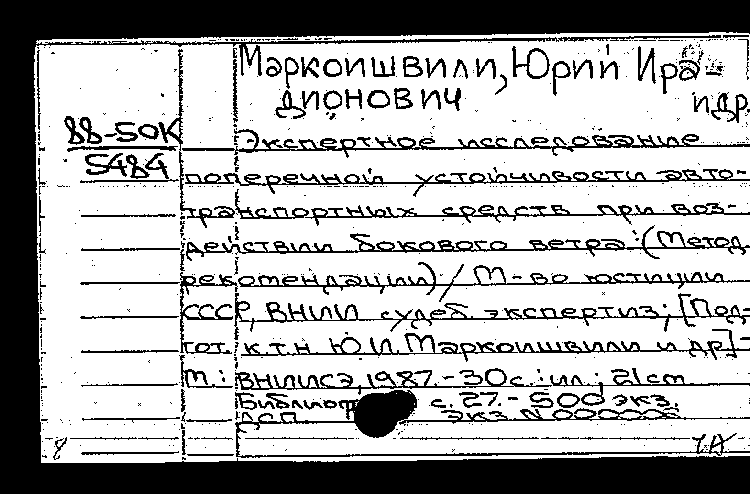 Маркоишвили, Юрий Ира-
дионович
и др.
88-50К
5484
Экспертное исследование
поперечной устойчивости авто-
транспортных средств при воз-
действии бокового ветра: (Метод.
рекомендации) / М-во юстиции
СССР, ВНИИ судеб. экспертиз; [Под-
гот. к.т.н. Ю.И. Маркоишвили и др.] -
М.: ВНИИСЭ, 1987. - 30 с.: ил.; 21 см
с. 27. - 500 экз.
ДСП экз. N 000006
8